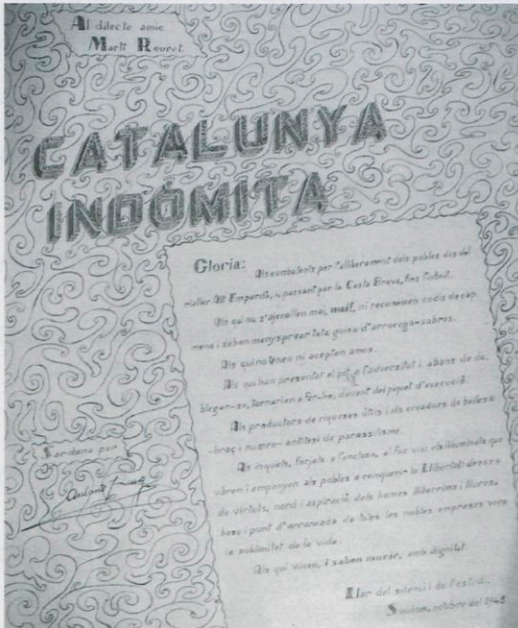 Al dilecte amic
Martí Rouret.
CATALUNYA
INDÒMITA
Gloria:
Als combatents per l'alliberament dels pobles des del
Alt Empordà, i passant per la Costa Brava, fins
Als qui no s'agenollen mai, mai!, ni reconeixen
i saben menysprear tota guisa d'arrossega-sabres.
Als qui no tenen ni accepten amos.
Als qui han presentat el pit a l'adversitat i, abans de do-
blegar-se, tornarien a fer-ho, davant del piquet d'execució.
Als productors de riqueses útils i als creadors de bellesa
-braç i numen- antítesi de parassitisme.
Als inquiets, forjats a l'enclusa, al foc viu; als il·luminats que
vibren i empenyen als pobles a conquerir la Llibertat:
de virtuts, nord i aspiració dels homes lliberrims i lliures,
base i punt d'arrancada de totes les nobles empreses vers
la sublimitat de la vida.
Als qui viuen, i saben morir, amb dignitat.
Sardana per:
Llar del silenci i de l'estudi.
octubre del 1948